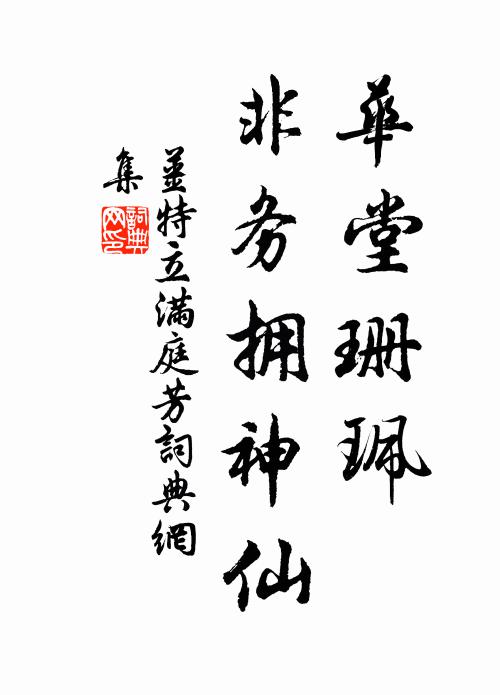 華堂珊珮
非务拥神仙
薑特立滿庭芳詞典網
集
詞典
网印